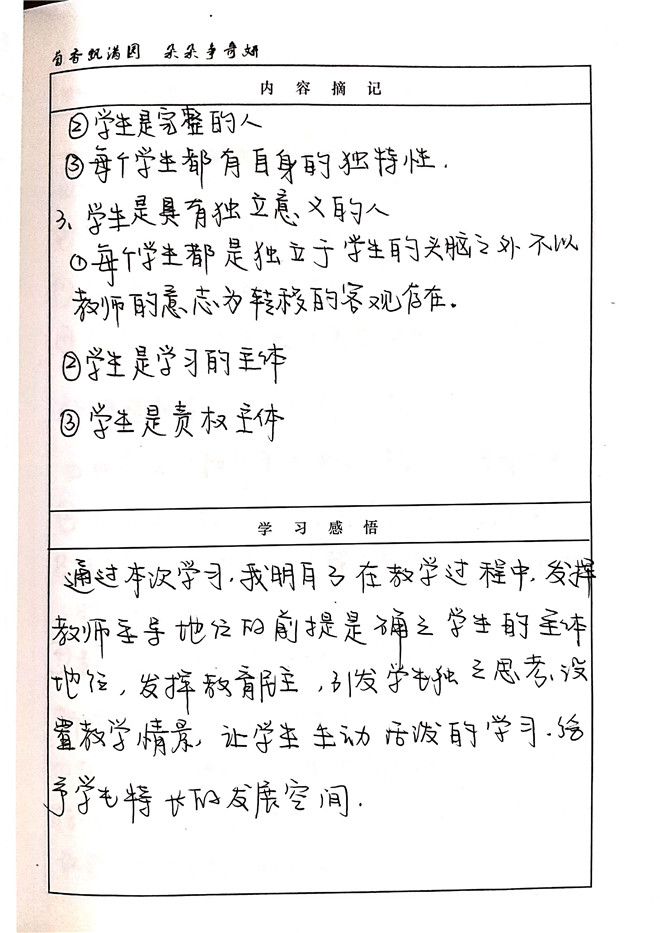 苜香飘满园 朵朵争奇妍
内容摘记
②学生是完整的人
③每个学生都有自身的独特性.
3、学生是具有独立意义的人
①每个学生都是独立于学生的头脑之外不以
教师的意志为转移的客观存在。
②学生是学习的主体
③学生是责权主体
学习感悟
通过本次学习,我明白了在教学过程中,发挥
教师主导地位的前提是确立学生的主体
地位,发挥教育民主,引发学生独立思考、设
置教学情景,让学生生动活泼的学习.给
予学生特长的发展空间.